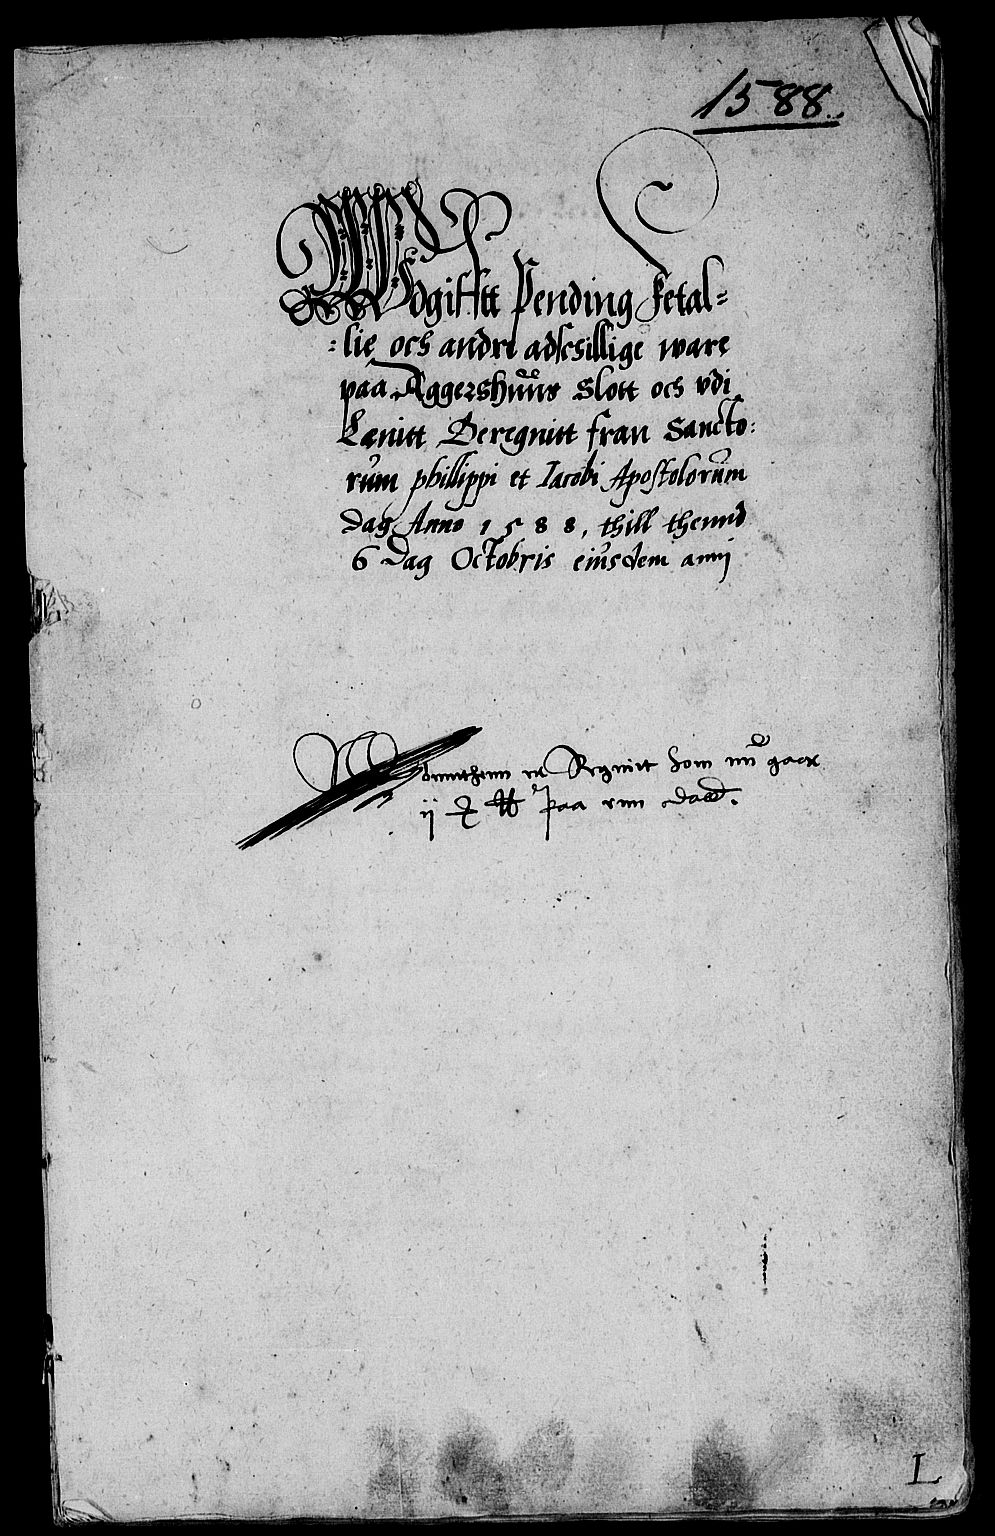 1588.
Wdgifftt Pending Fetal=
=lie och andre adscsillige ware
paa Aggershuus Slott och vdi
Lænitt Beregnitt fran Sancto=
rum phillippi et Iacobi Apostolorum
dag Anno 1588, thill thennd
6 Dag Octobris eiusdem anni
som nu
ij paa daad.
L